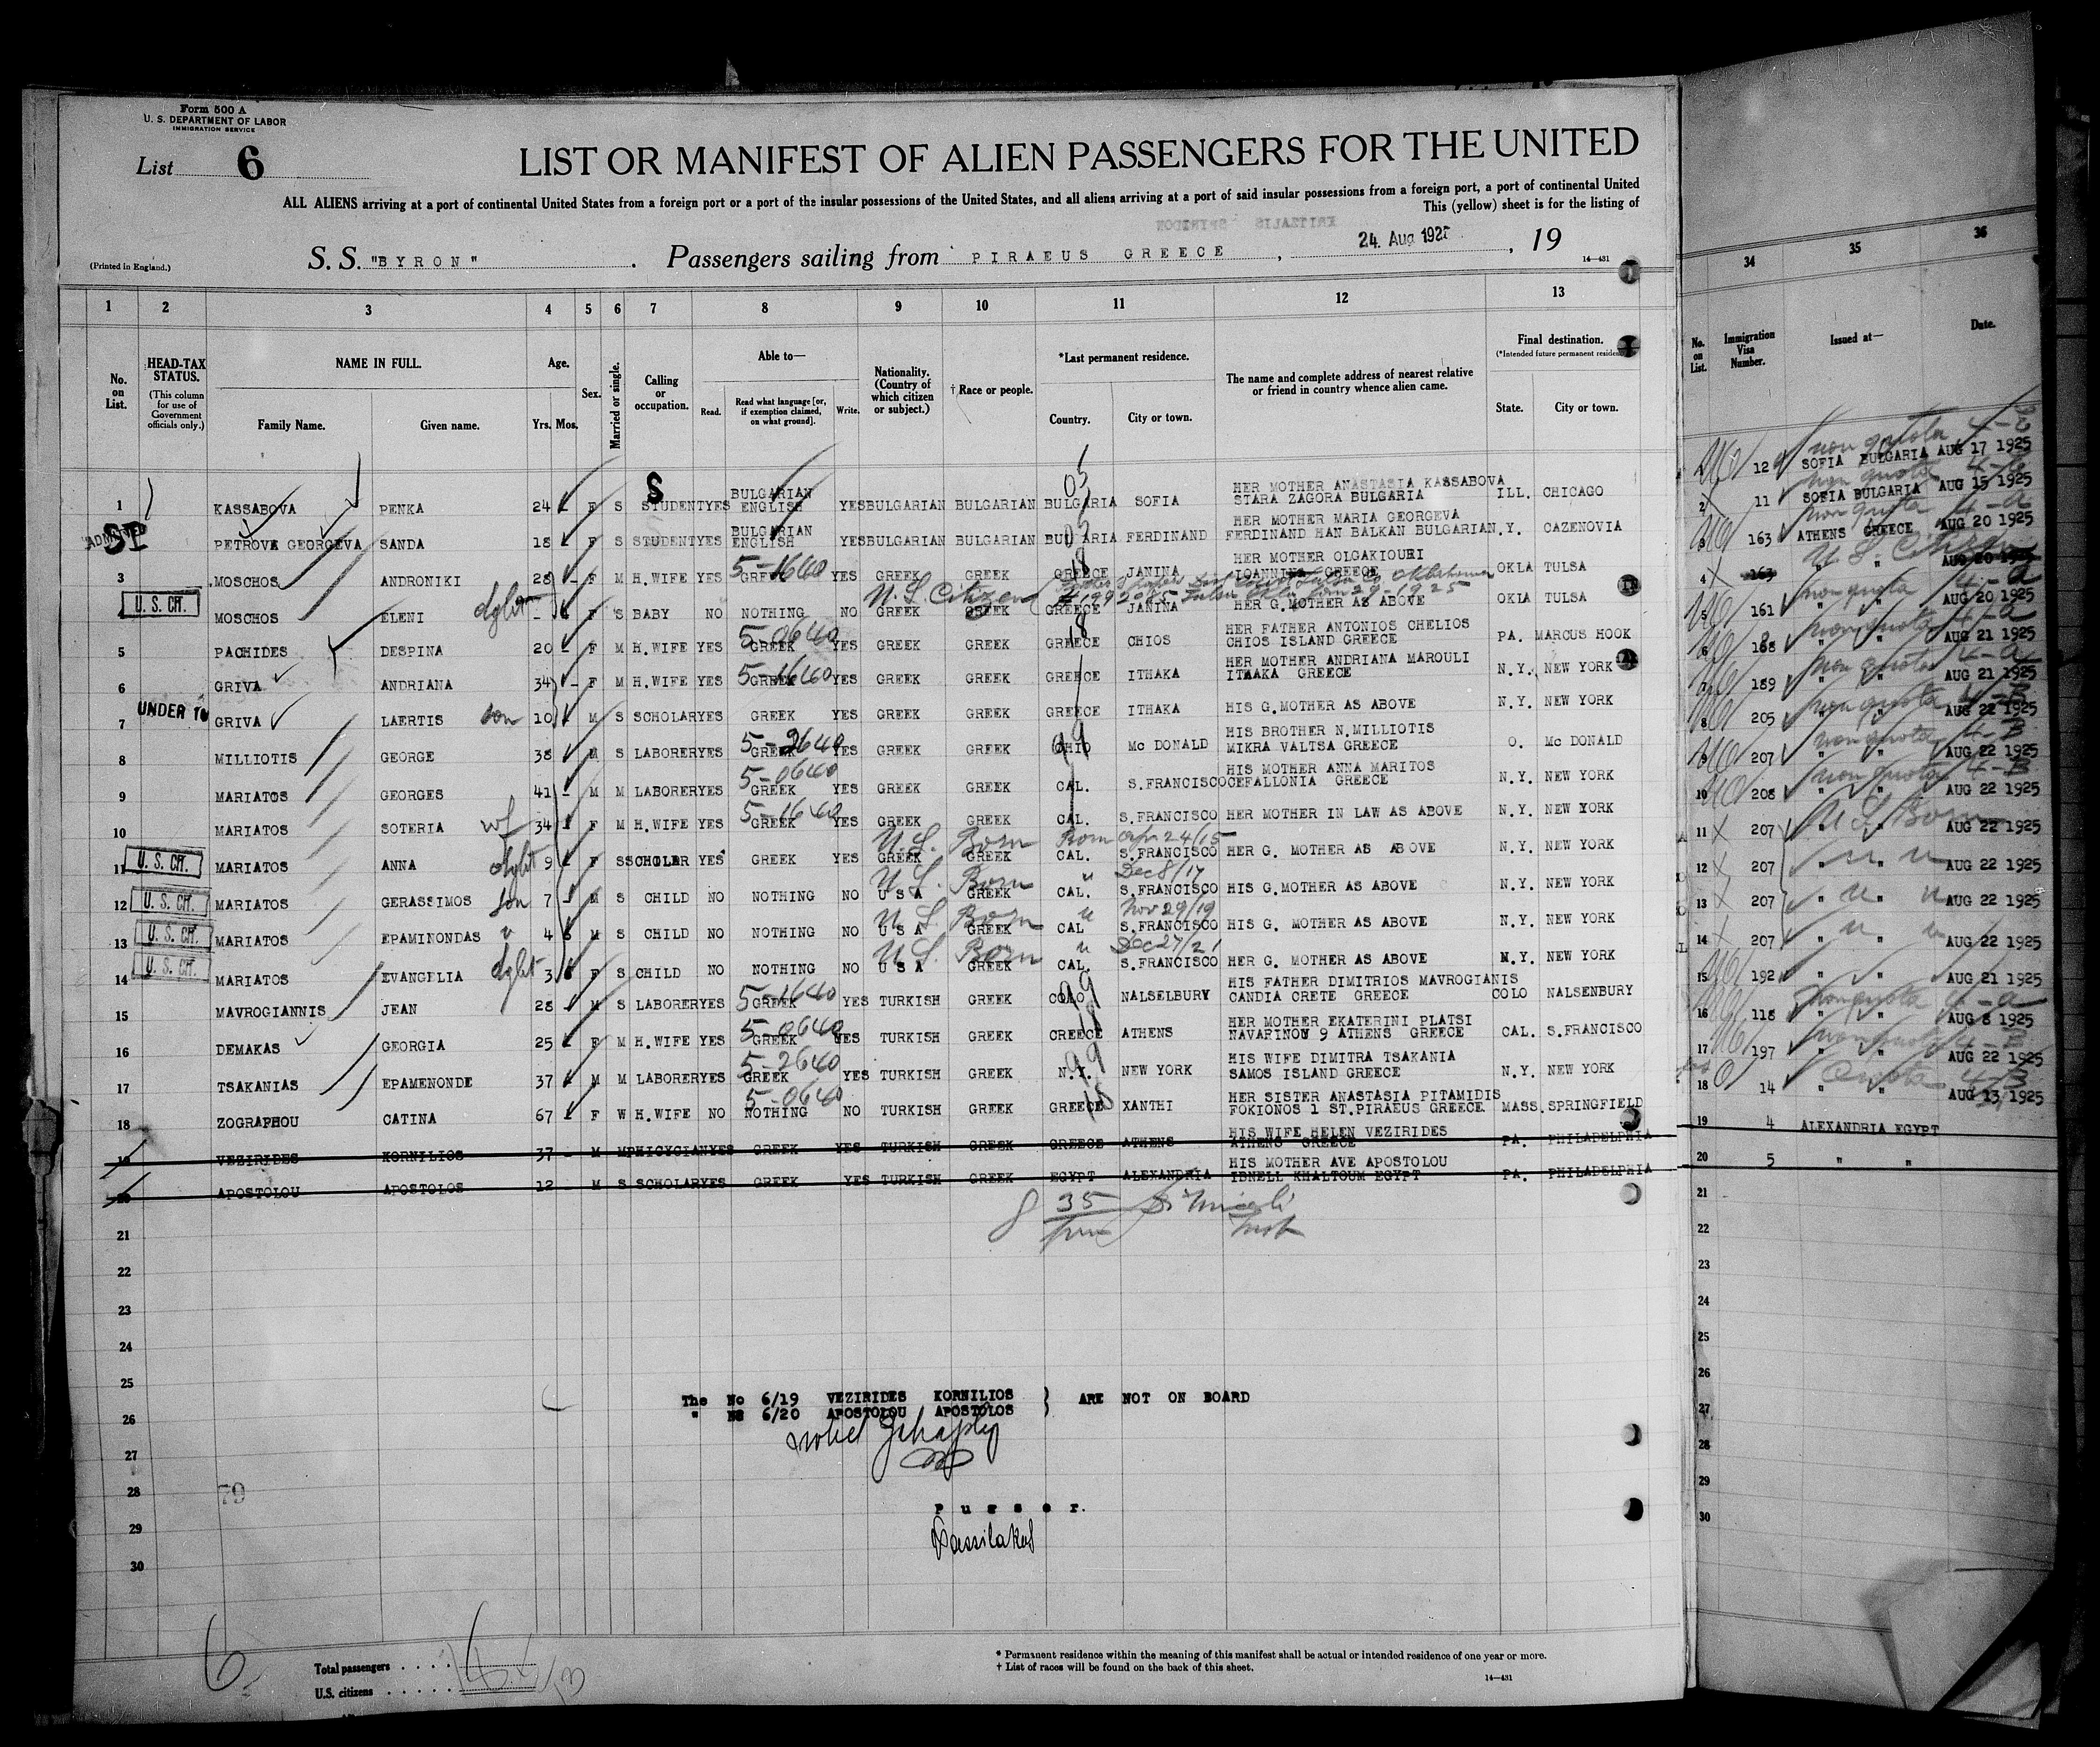 Form 500 A
U. S. DEPARTMENT OF LABOR
IMMIGRATION SERVICE
List 6
LIST OR MANIFEST OF ALIEN PASSENGERS FOR THE UNITED
ALL ALIENS arriving at a port of continental United States from a foreign port or a port of the insular possessions of the United States, and all aliens arriving at a port of said insular possessions from a foreign port, a port of continental United
This (yellow) sheet is for the listing of
(Printed in England.)
S. S. "BYRON" . Passengers sailing from PIRAEUS GREECE , 24. Aug 1925 , 19
14—431
1 2 3 4 5 6 7 8 9 10 11 12 13 34 35 36
No. on List.
HEAD-TAX STATUS.
(This column for use of Government officials only.)
NAME IN FULL.
Family Name. Given name.
Age.
Yrs. Mos.
Sex.
Married or single.
Calling or occupation.
Able to—
Read. Read what language [or, if exemption claimed, on what ground]. Write.
Nationality. (Country of which citizen or subject.)
† Race or people.
*Last permanent residence.
Country. City or town.
The name and complete address of nearest relative or friend in country whence alien came.
Final destination.
(*Intended future permanent residence
State. City or town.
No. on List. Immigration Visa Number. Issued at— Date.
1 KASSABOVA PENKA 24 F S STUDENT YES BULGARIAN ENGLISH YES BULGARIAN BULGARIAN BULGARIA SOFIA HER MOTHER ANASTASIA KASSABOVA STARA ZAGORA BULGARIA ILL. CHICAGO 12 non quota SOFIA BULGARIA AUG 17 1925
ADMITTED SI PETROVA GEORGEVA SANDA 18 F S STUDENT YES BULGARIAN ENGLISH YES BULGARIAN BULGARIAN BULGARIA FERDINAND HER MOTHER MARIA GEORGEVA FERDINAND HAN BALKAN BULGARIA N.Y. CAZENOVIA 11 non quota SOFIA BULGARIA AUG 15 1925
3 MOSCHOS ANDRONIKI 28 - F M H.WIFE YES GREEK 5-1640 YES GREEK GREEK GREECE JANINA HER MOTHER OLGAKIOURI IOANNINA GREECE OKLA TULSA 163 non quota 4-a ATHENS GREECE AUG 20 1925
U. S. CIT. MOSCHOS ELENI dght - F S BABY NO NOTHING NO GREEK GREEK GREECE JANINA HER G.MOTHER AS ABOVE OKLA TULSA 163 U.S. Citizen AUG 20 1925
U.S. Citizen
5 PACHIDES DESPINA 20 - F M H.WIFE YES GREEK 5-0640 YES GREEK GREEK GREECE CHIOS HER FATHER ANTONIOS CHELIOS CHIOS ISLAND GREECE PA. MARCUS HOOK 161 non quota 4-a AUG 20 1925
6 GRIVA ANDRIANA 34 - F M H.WIFE YES GREEK 5-1640 YES GREEK GREEK GREECE ITHAKA HER MOTHER ANDRIANA MAROULI ITHAKA GREECE N.Y. NEW YORK 188 non quota 4-a AUG 21 1925
7 UNDER 16 GRIVA LAERTIS son 10 M S SCHOLAR YES GREEK YES GREEK GREEK GREECE ITHAKA HIS G.MOTHER AS ABOVE N.Y. NEW YORK 189 non quota 4-a AUG 21 1925
8 MILLIOTIS GEORGE 38 M S LABORER YES GREEK 5-2640 YES GREEK GREEK OHIO Mc DONALD HIS BROTHER N.MILLIOTIS MIKRA VALTSA GREECE O. Mc DONALD 205 non quota 4-B AUG 22 1925
9 MARIATOS GEORGES 41 - M M LABORER YES GREEK 5-0640 YES GREEK GREEK CAL. S.FRANCISCO HIS MOTHER ANNA MARITOS CEFALLONIA GREECE N.Y. NEW YORK 207 non quota 4-B AUG 22 1925
10 MARIATOS SOTERIA wf 34 F M H.WIFE YES GREEK 5-1640 YES GREEK GREEK CAL. S.FRANCISCO HER MOTHER IN LAW AS ABOVE N.Y. NEW YORK 208 non quota 4-B AUG 22 1925
11 U. S. CIT. MARIATOS ANNA dght 9 F S SCHOLAR YES GREEK YES GREEK U.S. Born GREEK CAL. Born Apr 24/15 S.FRANCISCO HER G. MOTHER AS ABOVE N.Y. NEW YORK 207 U.S. Born AUG 22 1925
12 U. S. CIT. MARIATOS GERASSIMOS son 7 M S CHILD NO NOTHING NO U S A U.S. Born GREEK CAL. " Dec 8/17 S.FRANCISCO HIS G.MOTHER AS ABOVE N.Y. NEW YORK 207 " " AUG 22 1925
13 U. S. CIT. MARIATOS EPAMINONDAS " 4 M S CHILD NO NOTHING NO U S A U.S. Born GREEK CAL " Nov 29/19 S.FRANCISCO HIS G. MOTHER AS ABOVE N.Y. NEW YORK 207 " " AUG 22 1925
14 U. S. CIT. MARIATOS EVANGELIA dght 3 F S CHILD NO NOTHING NO U S A U.S. Born GREEK CAL. " Dec 27/21 S.FRANCISCO HER G. MOTHER AS ABOVE N.Y. NEW YORK 207 " " AUG 22 1925
15 MAVROGIANNIS JEAN 28 M S LABORER YES GREEK 5-1640 YES TURKISH GREEK COLO 99 NALSELBURY HIS FATHER DIMITRIOS MAVROGIANIS CANDIA CRETE GREECE COLO NALSENBURY 192 " " AUG 21 1925
16 DEMAKAS GEORGIA 25 F M H.WIFE YES GREEK 5-0640 YES TURKISH GREEK CREECE ATHENS HER MOTHER EKATERINI PLATSI NAVARINOU 9 ATHENS GREECE CAL. S.FRANCISCO 118 non quota 4-a AUG 8 1925
17 TSAKANIAS EPAMENONDE 37 M M LABORER YES GREEK 5-2640 YES TURKISH GREEK N.Y. 99 NEW YORK HIS WIFE DIMITRA TSAKANIA SAMOS ISLAND GREECE N.Y. NEW YORK 197 non quota 4-B AUG 22 1925
18 ZOGRAPHOU CATINA 67 F W H.WIFE NO NOTHING 5-0640 NO TURKISH GREEK GREECE 18 XANTHI HER SISTER ANASTASIA PITAMIDIS FOKIONOS 1 ST.PIRAEUS GREECE MASS. SPRINGFIELD 14 Quota AUG 13 1925
19 VEZIRIDES KORNILIOS 37 - M M PHICYCIAN YES GREEK YES TURKISH GREEK GREECE ATHENS HIS WIFE HELEN VEZIRIDES ATHENS GREECE PA. PHILADELPHIA 4 ALEXANDRIA EGYPT
20 APOSTOLOU APOSTOLOS 12 M S SCHOLAR YES GREEK YES TURKISH GREEK EGYPT ALEXANDRIA HIS MOTHER AVE APOSTOLOU IDNELL KHALTOUM EGYPT PA. PHILADELPHIA 5 " "
35
21
22
23
24
25
26
27
28
29
30
The No 6/19 VEZIRIDES KORNILIOS } ARE NOT ON BOARD
" No 6/20 APOSTOLOU APOSTOLOS
79
Purser.
6
Total passengers . . . .
U.S. citizens . . . . .
* Permanent residence within the meaning of this manifest shall be actual or intended residence of one year or more.
† List of races will be found on the back of this sheet.
14—431